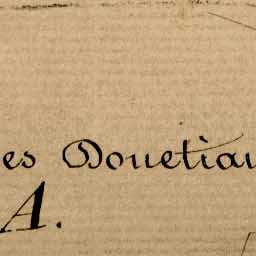 es Douetiau
A.